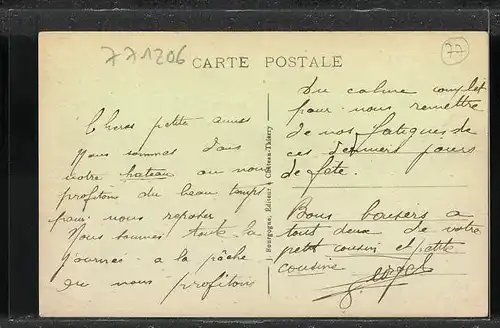 771206
CARTE POSTALE
77
Chers petits amis
Nous sommes dans
notre bateau ou nous
profitons du beau temps
pour nous reposer
Nous sommes toute la
journee a la pêche
ou nous profitons
J. Bourgogne, Éditeur à Château-Thierry
Du calme complet
pour nous remettre
de nos fatigues de
ces derniers jours
de fête.
Bons baisers a
tous deux de votre
petit cousin et petite
cousine